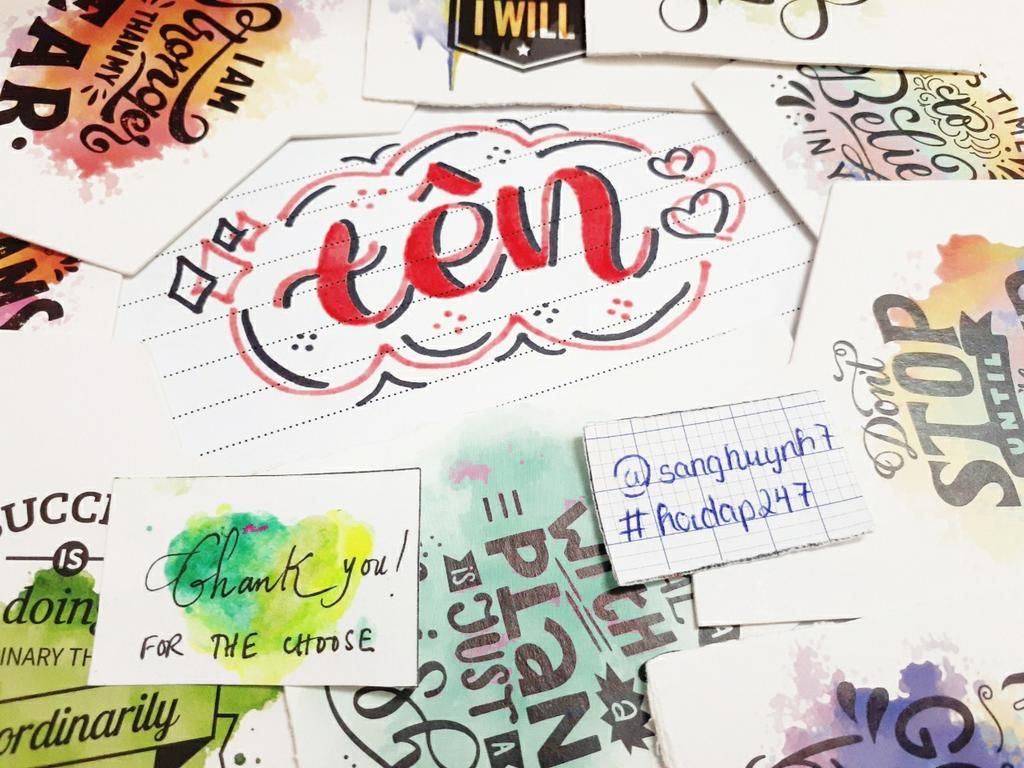 I AM
Stronger
THAN MY
AR.
I WILL
IN
Belie
tên
Dont
STOP
UNTIL
@sanghuynh7
#hoidap247
Thank you!
FOR THE CHOOSE
IS
doin
INARY TH
ordinarily
WITH
PLAN
IS JUST A
a